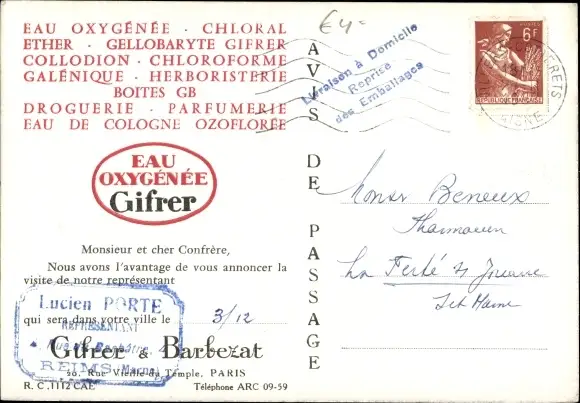 EAU OXYGÉNÉE · CHLORAL
ETHER · GELLOBARYTE GIFRER
COLLODION · CHLOROFORME
GALÉNIQUE · HERBORISTERIE
BOITES GB
DROGUERIE · PARFUMERIE
EAU DE COLOGNE OZOFLORÉE
EAU
OXYGÉNÉE
Gifrer
Monsieur et cher Confrère,
Nous avons l'avantage de vous annoncer la
visite de notre représentant
Lucien PORTE
REPRÉSENTANT
qui sera dans votre ville le 3/12
Rue de
REIMS (Marne)
Gifrer & Barbezat
20, Rue Vieille du Temple, PARIS
R. C. 1112 CAE Téléphone ARC 09-59
AVIS DE PASSAGE
€4-
Livraison à Domicile
Reprise
des Emballages
6F
POSTES
REPUBLIQUE FRANÇAISE
AISNE
Monsr Beneux
Pharmacien
La Ferté s/ Jouarre
Set Marne